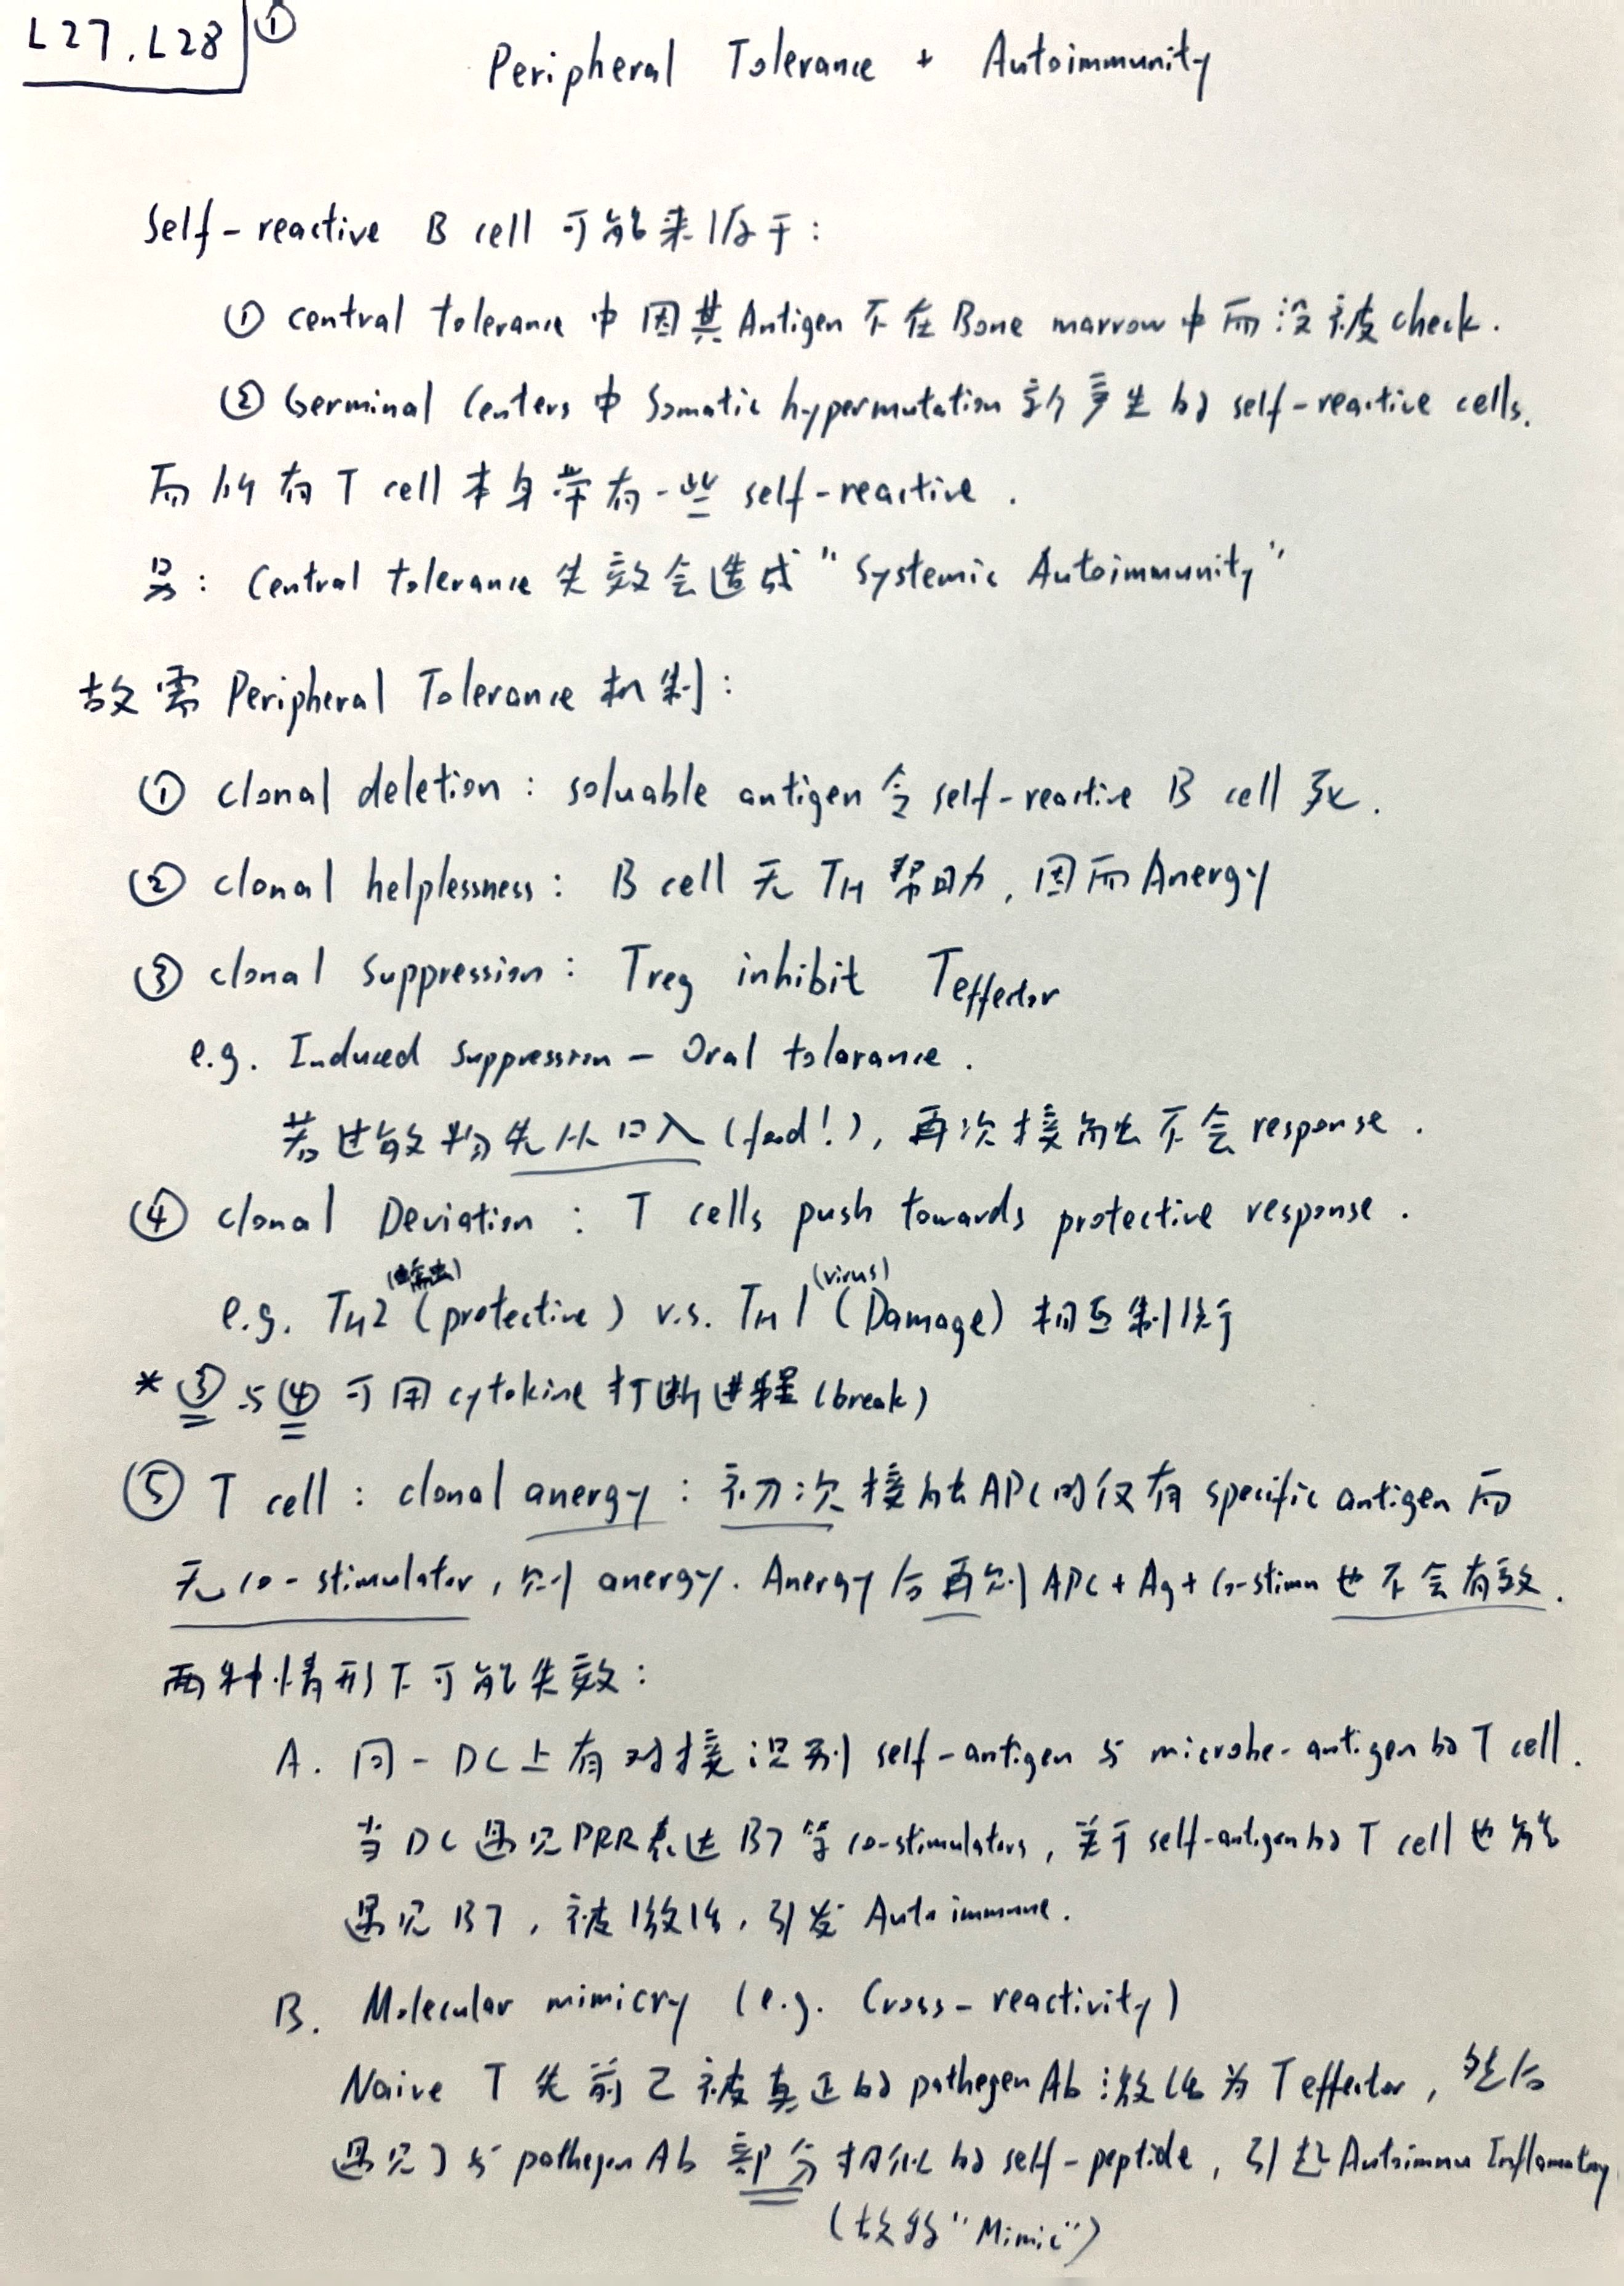 L27, L28 ①
Peripheral Tolerance + Autoimmunity
Self-reactive B cell 可能来源于：
① central tolerance 中因其 Antigen 不在 Bone marrow 中而没被 check.
② Germinal Centers 中 Somatic hypermutation 新产生的 self-reactive cells.
而所有 T cell 本身带有一些 self-reactive.
另：Central tolerance 失效会造成 "Systemic Autoimmunity"
故需 Peripheral Tolerance 机制：
① clonal deletion: soluable antigen 令 self-reactive B cell 死.
② clonal helplessness: B cell 无 TH 帮助, 因而 Anergy
③ clonal suppression: Treg inhibit Teffector
e.g. Induced suppression - Oral tolarance.
若过敏物先从口入 (food!), 再次接触不会 response.
④ clonal Deviation: T cells push towards protective response.
(蠕虫) (virus)
e.g. TH2 (protective) v.s. TH1 (Damage) 相互制衡
* ③与④ 可用 cytokine 打断进程 (break)
⑤ T cell: clonal anergy: 初次接触 APC 时仅有 specific antigen 而
无 co-stimulator, 则 anergy. Anergy 后再次到 APC + Ag + Co-stimu 也不会有效.
两种情形下可能失效：
A. 同一 DC 上有对接识别 self-antigen 与 microbe-antigen 的 T cell.
当 DC 遇见 PRR 表达 B7 等 co-stimulators, 关于 self-antigen 的 T cell 也能
遇见 B7, 被激活, 引发 Autoimmune.
B. Molecular mimicry (e.g. Cross-reactivity)
Naive T 先前已被真正的 pathegen Ab 激活为 T effector, 然后
遇见了与 pathegen Ab 部分相似的 self-peptide, 引起 Autoimmu Inflamatory
(故为 "Mimic")